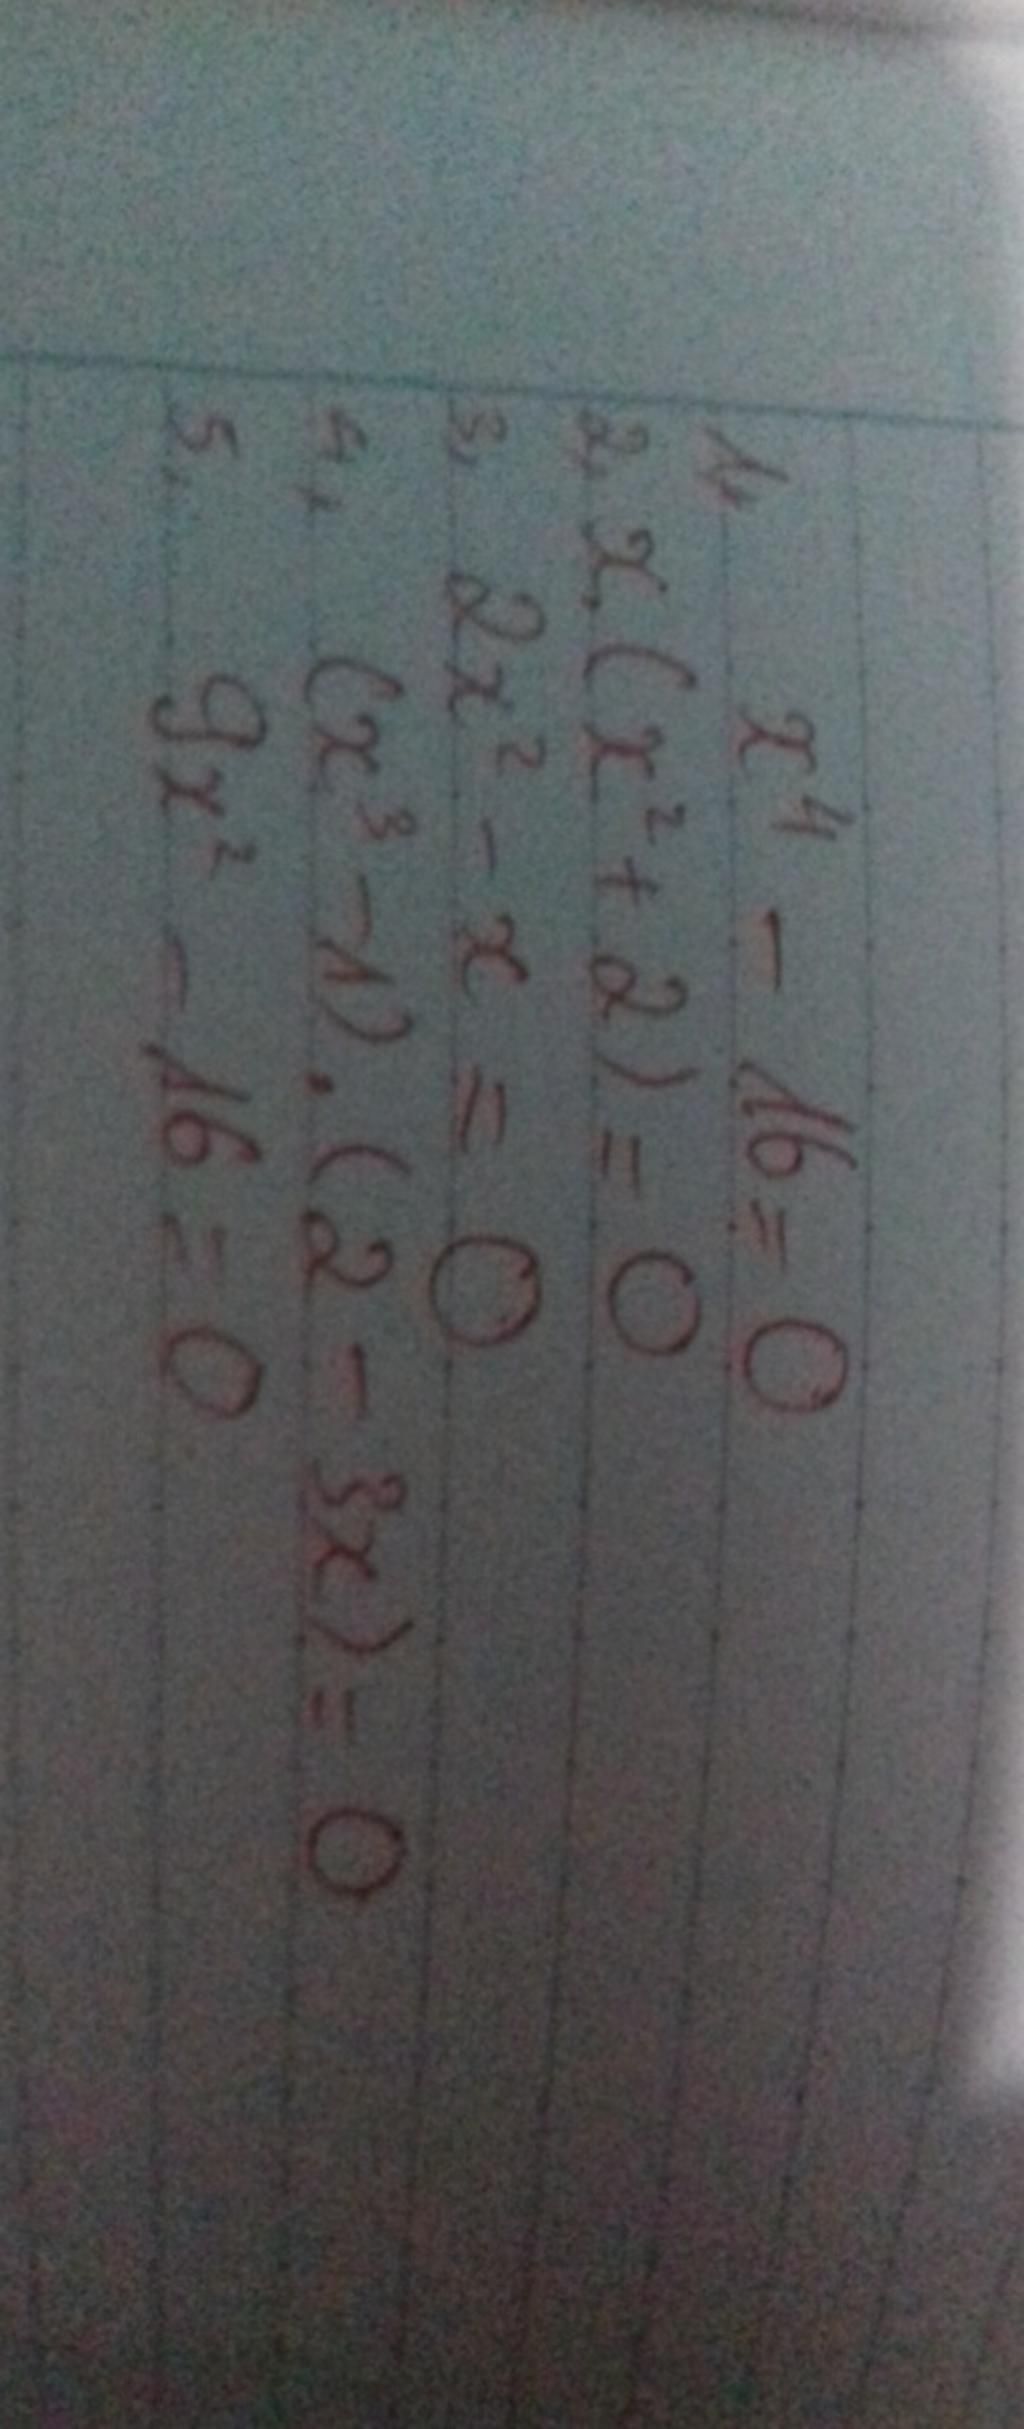 1, x⁴ - 16 = 0
2, x.(x² + 2) = 0
3, 2x² - x = 0
4, (x³ - 1).(2 - 3x) = 0
5, 9x² - 16 = 0